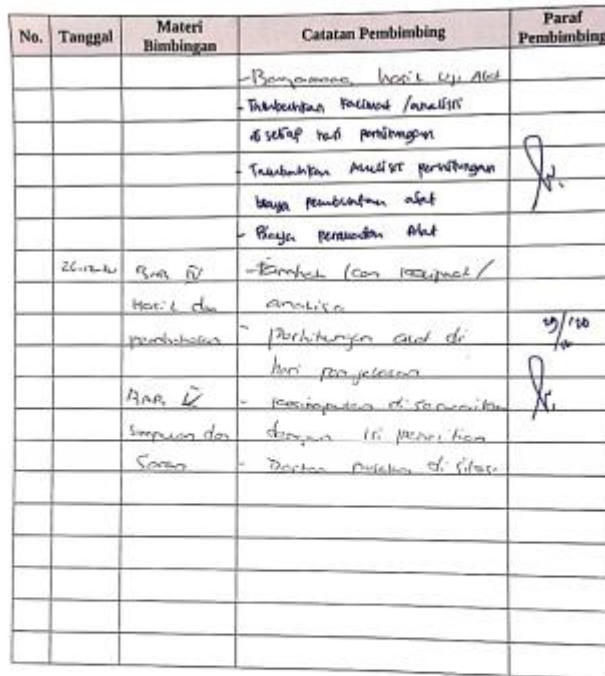 No. Tanggal Materi Bimbingan Catatan Pembimbing Paraf Pembimbing
- hasil Uji Alat
- Tambahkan kalimat /analisis
di setiap hasil perhitungan
- Tambahkan Analisis perhitungan
biaya pembuatan alat
- Biaya pembuatan Alat
BAB IV - Tambah kan kalimat/
Hasil dan analisa
pembahasan - Perhitungan alat di
beri penjelasan
BAB V - kesimpulan di sesuaikan
Simpulan dan dengan isi penelitian
Saran - Daftar pustaka di sitasi